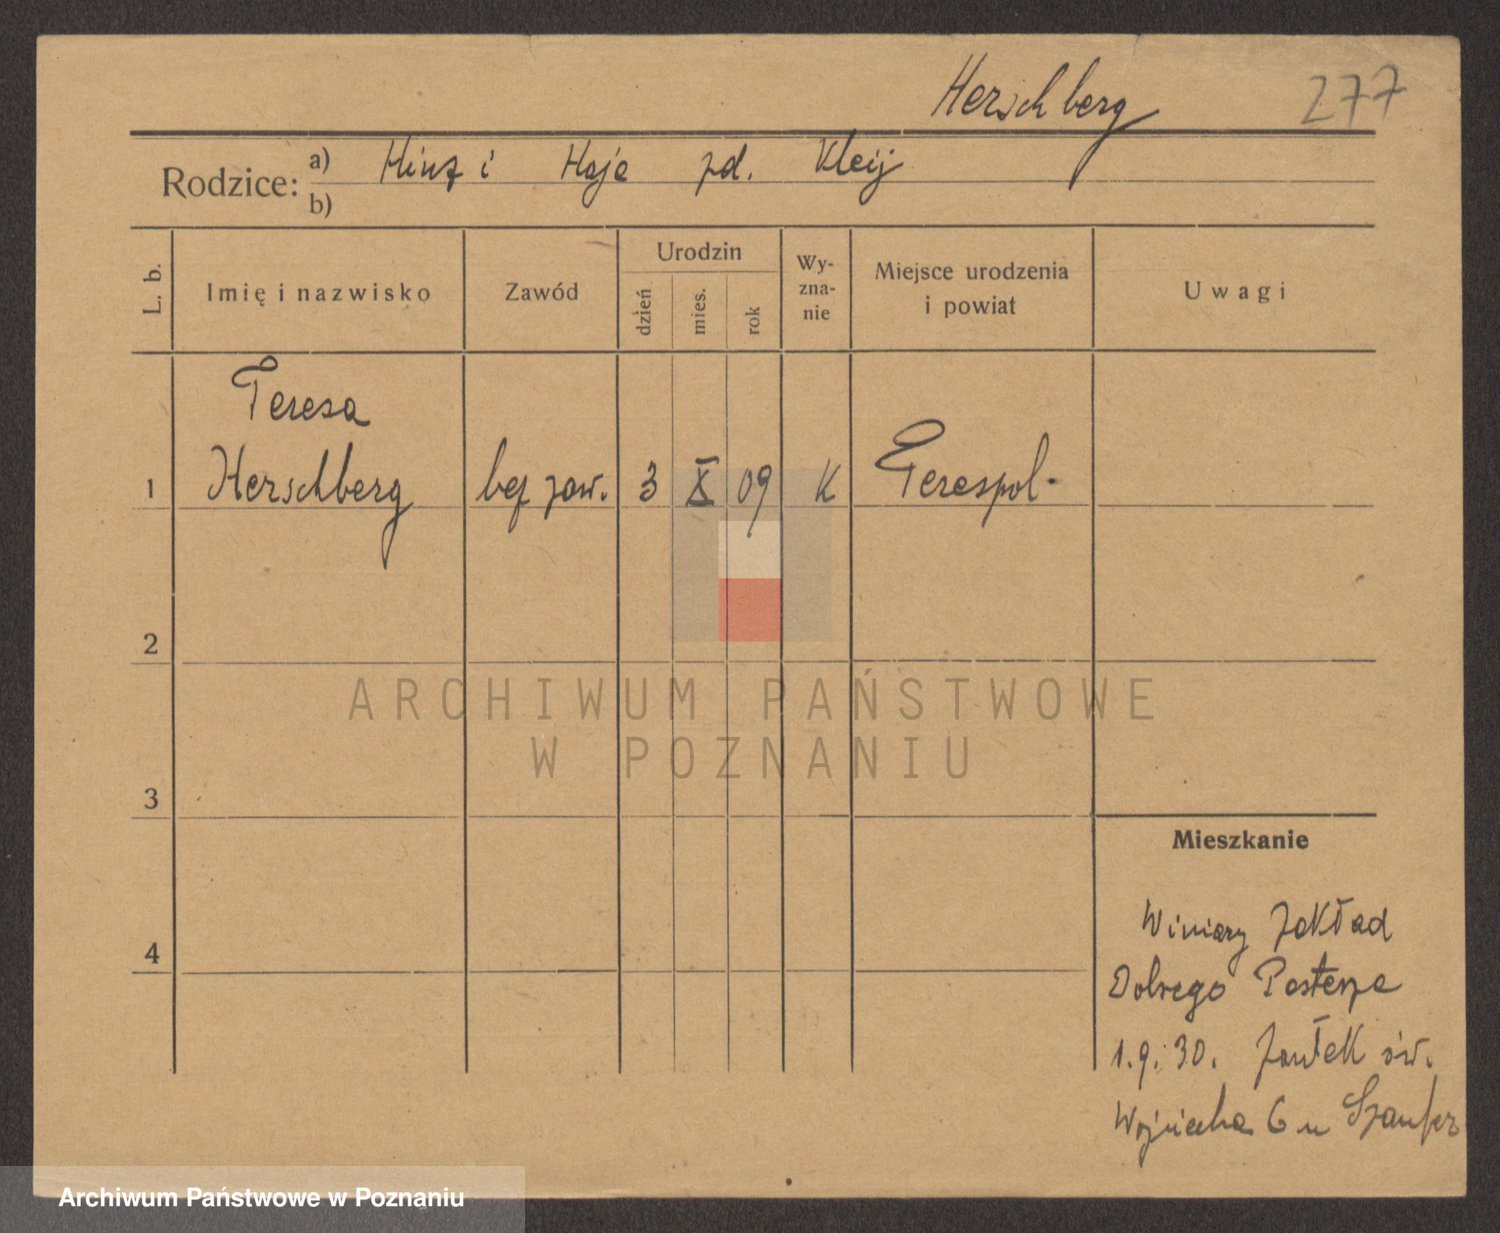 Herschberg 277
Rodzice: a) Hinz i Haje zd. Kleij
b)
L. b. Imię i nazwisko Zawód Urodzin dzień mies. rok Wy-zna-nie Miejsce urodzenia i powiat Uwagi
Teresa
1 Herschberg bez zaw. 3 X 09 K Terespol.
2
ARCHIWUM PAŃSTWOWE
W POZNANIU
3
Mieszkanie
4
Winiary Zakład
Dobrego Pasterza
1.9.30. Zaułek św.
Wojciecha 6 u
Archiwum Państwowe w Poznaniu